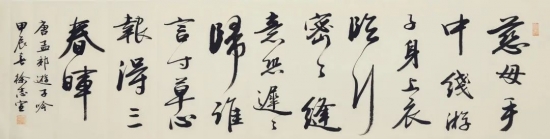 慈母手
中线游
子身上衣
临行
密々缝
意恐迟々
归谁
言寸草心
报得三
春晖
唐孟郊游子吟
甲辰春徐志宣